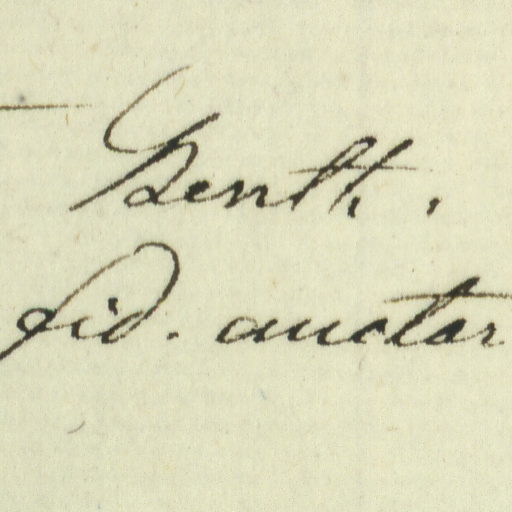 Benth.
fid. auctor